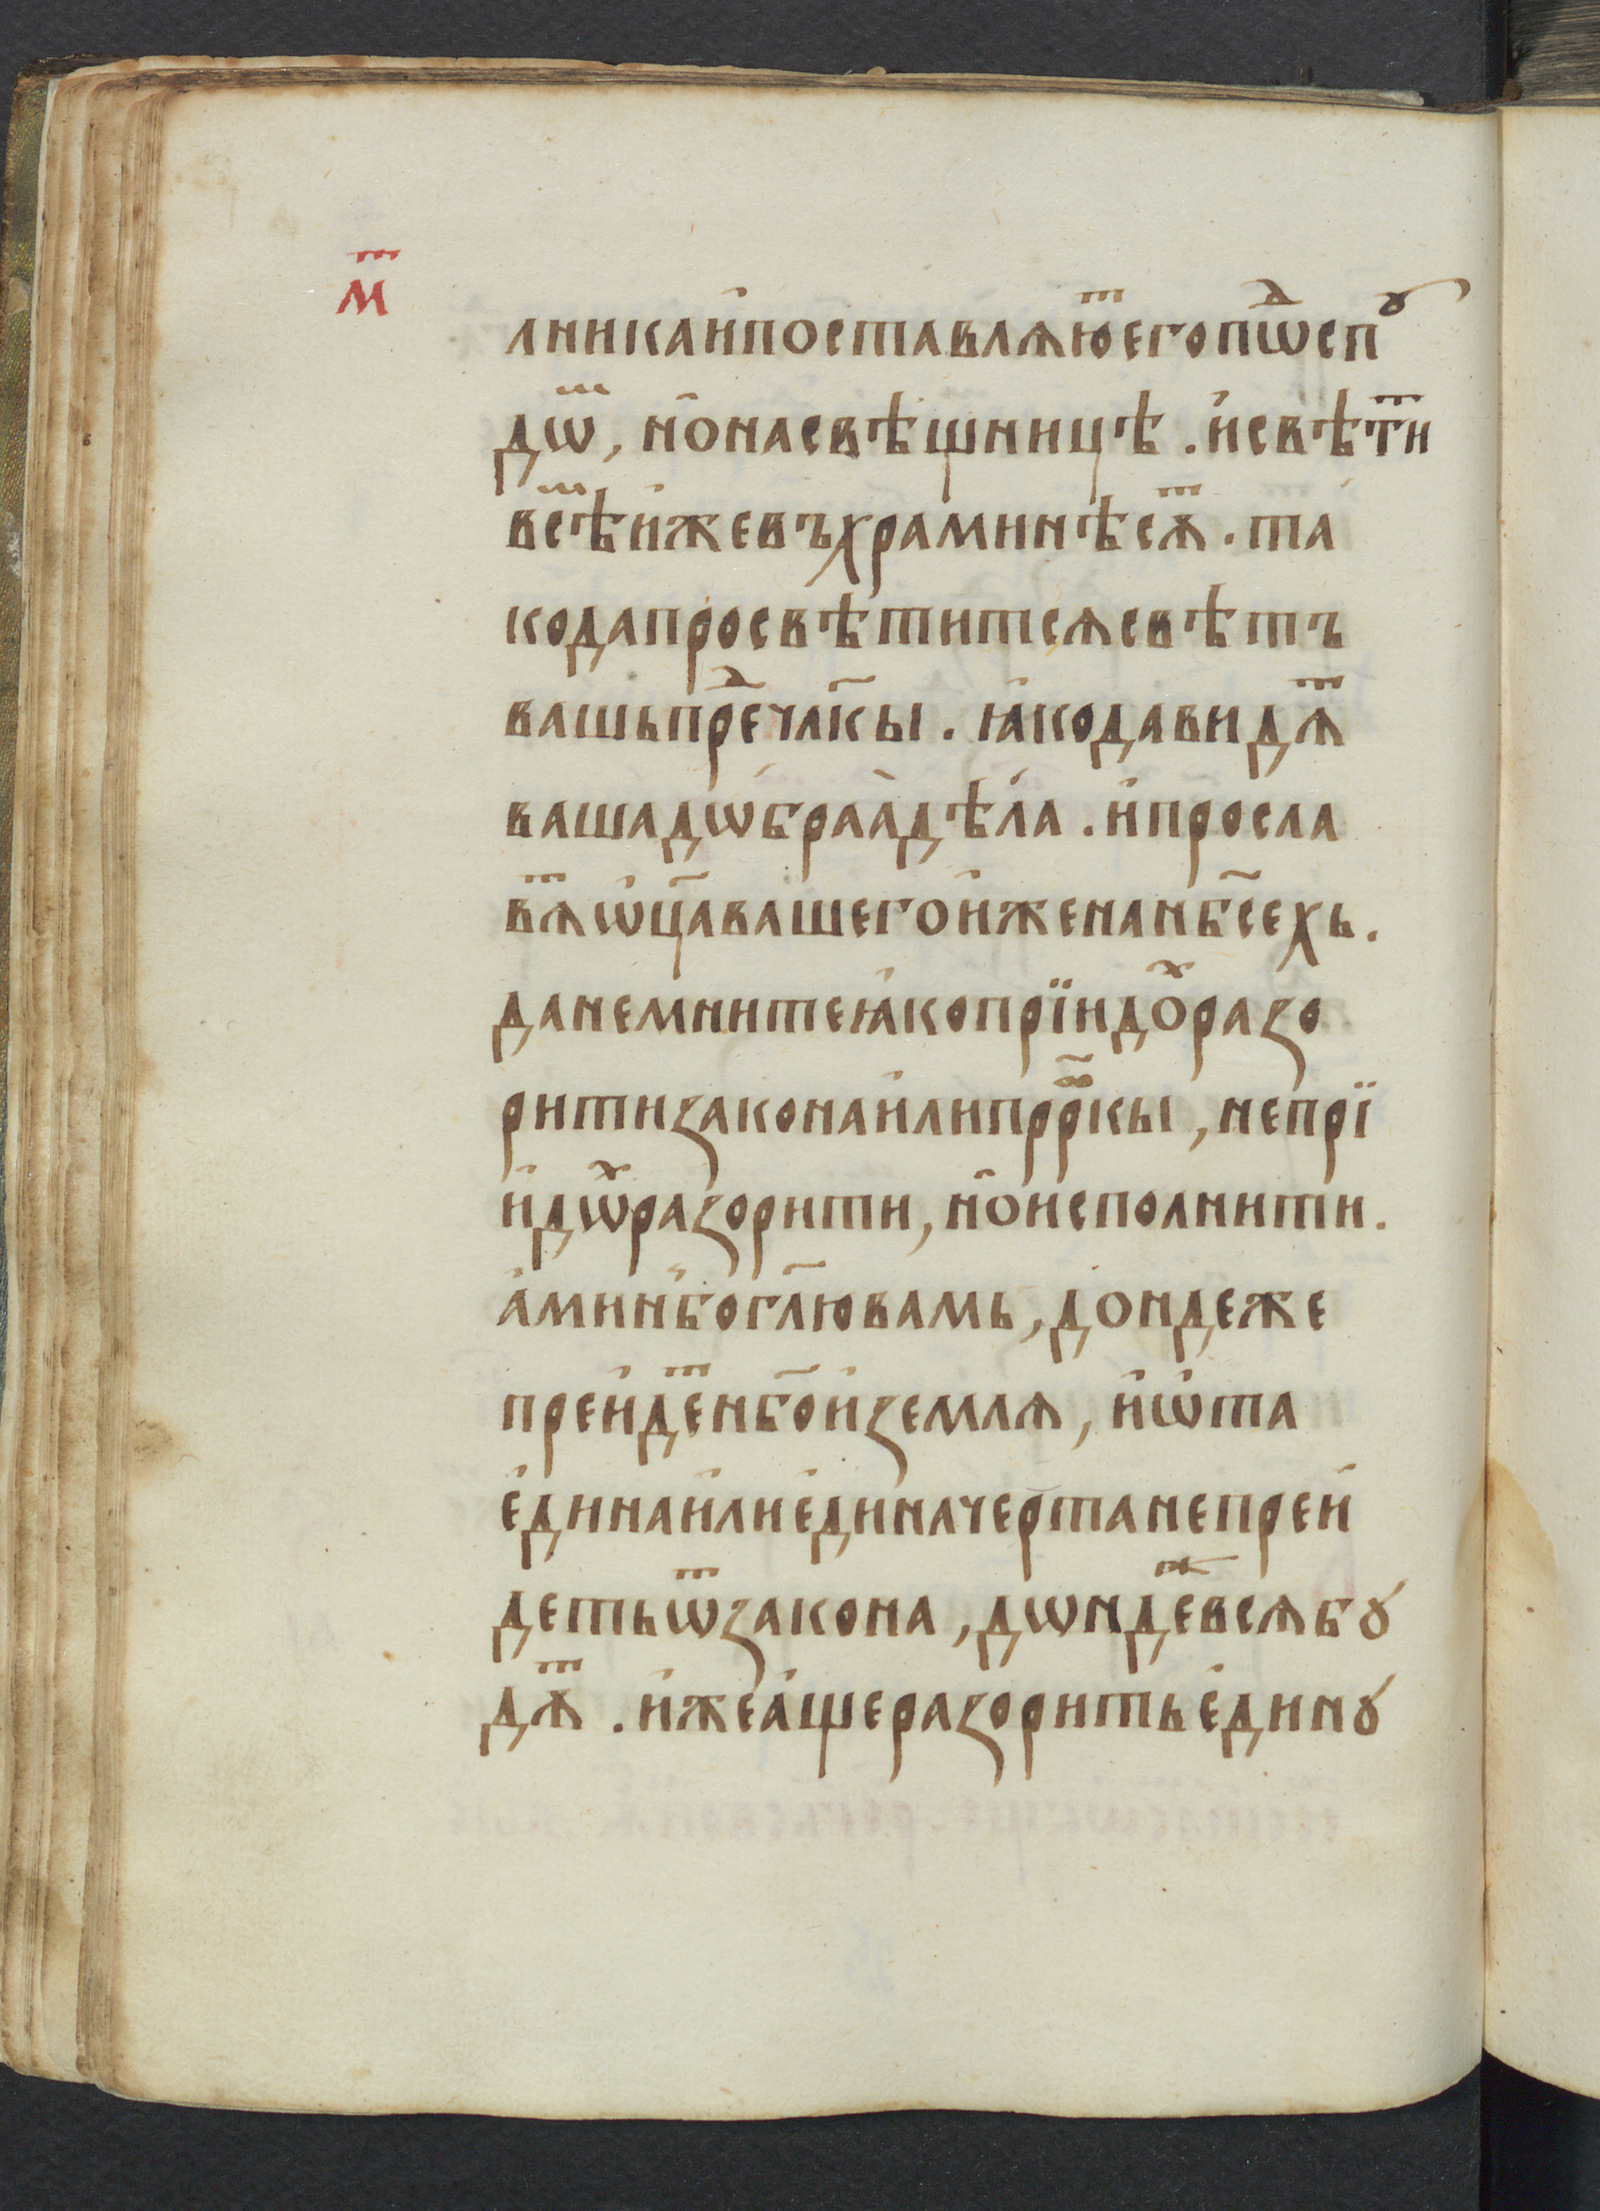 м҃т
лникаипоставлѧ́ютегопⷣѡспꙋ
дѡⷨ, ноⷩ҇насвѣщницѣ. исвѣтиⷮ
всѣⷨижевъхраминѣсѧⷮ. та
кодапросвѣтитсѧсвѣтъ
вашьпреⷣчл҃кы. ꙗкодавидѧⷮ
вашадѡбраадѣла. ипросла
вѧⷮѡц҃авашегоиженанб҃сехь.
данемнитеꙗкопрїидоⷯразо
ритизаконаилипрⷪ҇ркы, непрї
идѡⷯразорити, ноисполнити.
аминьбогл҃ювамь, дондеже
преидеⷮнб҃оиземлѧ, иѡта
единаилиединачертанепреи
детьѿзакона, дѡндеⷤвсѧбꙋ
дѧⷮ. ижеащеразоритьединꙋ